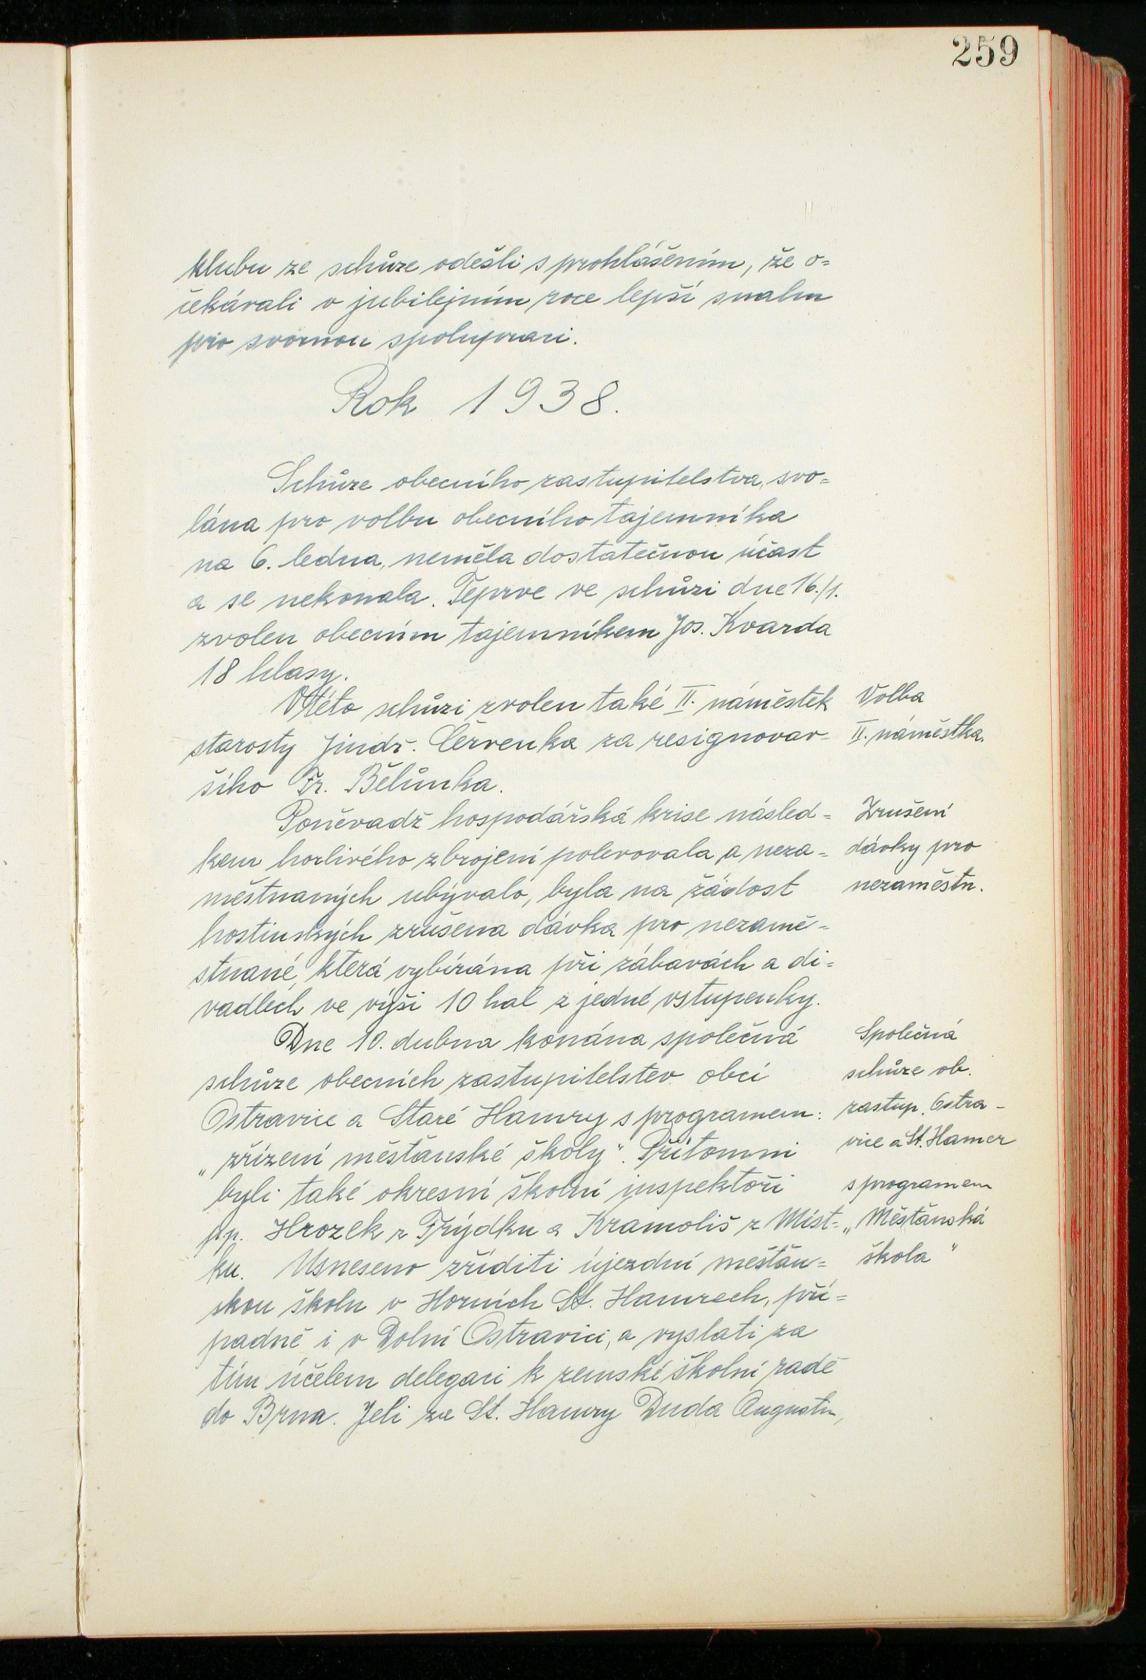 259
klubu ze schůze odešli s prohlášením, že o=
čekávali v jubilejním roce lepší snahu
pro svornou spolupraci.
Rok 1938.
Schůze obecního zastupitelstva, svo=
lána pro volbu obecního tajemníka
na 6. ledna, neměla dostatečnou účast
a se nekonala. Teprve ve schůzi dne 16./1.
zvolen obecním tajemníkem Jos. Kvarda
18 hlasy.
V této schůzi zvolen také II. náměstek
starosty Jindř. Červenka za resignovav=
šího Fr. Bělůnka.
Volba
II. náměstka.
Poněvadž hospodářská krise násled=
kem horlivého zbrojení polevovala a neza=
městnaných ubývalo, byla na žádost
hostinských zrušena dávka pro nezamě=
stnané, která vybírána při zábavách a di=
vadlech ve výši 10 hal z jedné vstupenky.
Zrušení
dávky pro
nezaměstn.
Dne 10. dubna konána společná
schůze obecních zastupitelstev obcí
Ostravice a Staré Hamry s programem:
„zřízení měšťanské školy“. Přítomni
byli také okresní školní inspektoři
pp. Hrozek z Frýdku a Kramoliš z Míst=
ku. Usneseno zříditi újezdní měšťan=
skou školu v Horních St. Hamrech, pří=
padně i v Dolní Ostravici, a vyslati za
tím účelem delegaci k zemské školní radě
do Brna. Jeli ze St. Hamry Duda Augustin,
Společná
schůze ob.
zastup. Ostra-
vice a St. Hamer
s programem
„Měšťanská
škola“